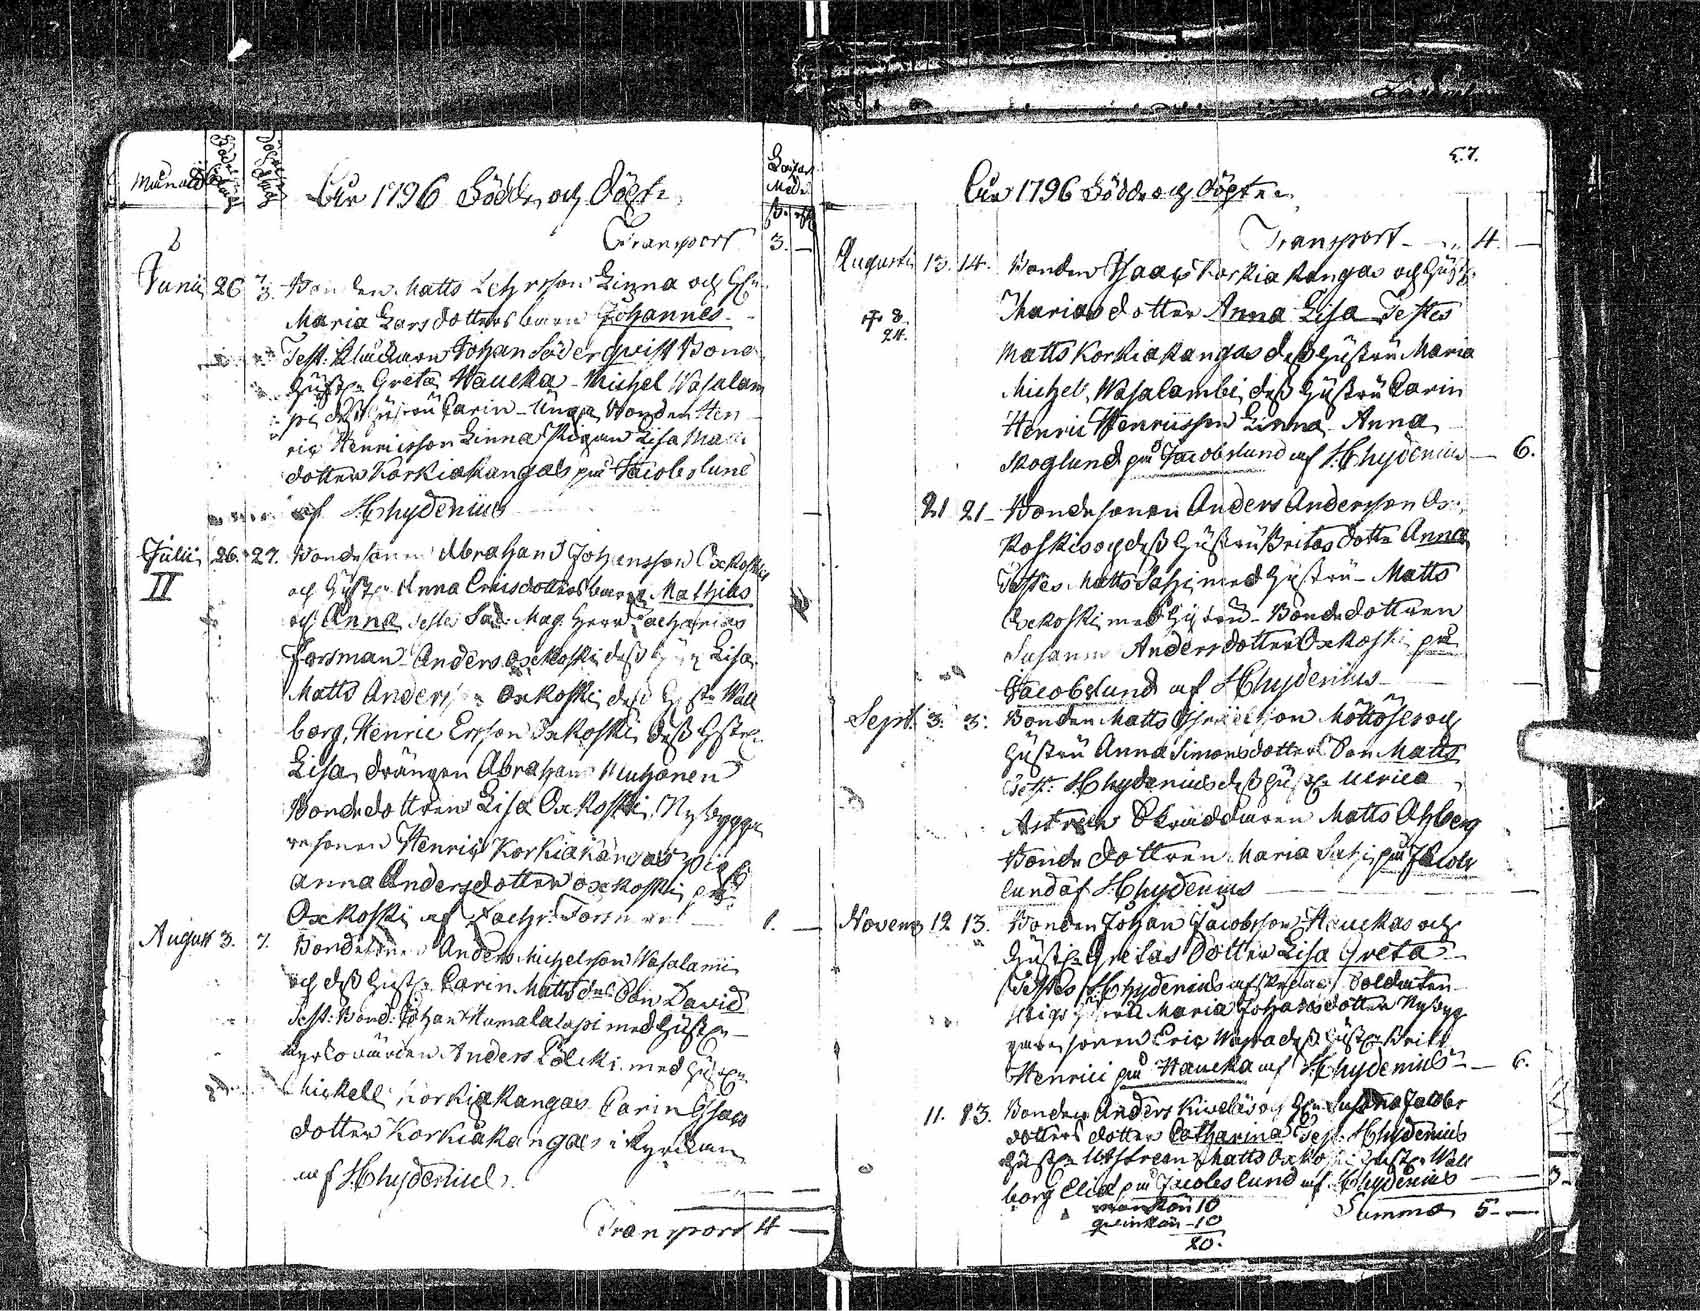 Månad
Åhr 1796 Födde och Döpte
Transport 3. —
Junii 26 3. Bonden Matts Lehrsson Linna och
Maria Larsdotters barn Johannes
Test: Johan Söderqvist Bond
Hustr. Greta Haucka - Michel Wasalam
pi deß hustru Carin - unga Bonden Hen
ric Henricsson Linna Pigan Lisa Matts
dotter Korkiakangas på Jacobslund
af H Chydenius
Julii 26. 27. Bondesonen Abraham Johansson Oxkoski
II och Hustr. Anna Ericsdotters barn Mathias
och Anna Testes Sac. Mag. Herr Zacharias
Forsman - Anders Oxkoski deß Lisa
Matts Anderss. Oxkoski deß Wall
borg, Henric Ersson Oxkoski deß Hustr.
Lisa, drängen Abraham Muhonen
Bondedottren Lisa Oxkoski, Nybygga
resonen Henric Korkiakangas Pig.
Anna Andersdotter Oxkoski på
Oxkoski af Zachr. Forsman 1. —
August 3. 7. Bondesonen Anders Michelsson Wasalami
och deß Hustr. Carin Mattsdr Son David
Test: Bond: Johan Humalalapi med Hustru
Kyrkowärden Anders Pölcki med Hustru
Michell Korkiakangas Carin Isaacs
dotter Korkiakangas i Kyrckan
af H Chydenius.
Transport 4 —
57.
Åhr 1796 Födde och Döpte
Transport — 4. —
Augusti 13. 14. Bonden Isaac Korkiakangas och Hustr.
Marias dotter Anna Lisa Testes
† 8.
24.
Matts Korkiakangas deß Hustru Maria
Michel Wasalambi, deß Hustru Carin
Henric Henricsson Linna - Anna
Skoglund på Jacobslund af H Chydenius — 6.
21 21 - Bondesonen Anders Andersson Ox
koski och deß Hustru Britas dotter Anna
Testes Matts Sahi med Hustru - Matts
Oxkoski med Hustru - Bondedottren
Susanna Andersdotter Oxkoski på
Jacobslund af H Chydenius —
Sept. 3. 3. Bonden Matts Israelsson Möttöses och
Hustru Anna Simonsdotters Son Matts
Test: H Chydenius deß Hustr. Ulrica
Astrein Skräddaren Matts Ahlberg
Bonde dottren Maria Sahi, på Jacobs
lund af H Chydenius —
Novemb 12 13. Bonden Johan Jacobsson Hauckas och
Hustr. Gretas Dotter Lisa Greta
Testes H Chydenius afskedad Soldaten
Maria Johansdotter Nybyg
garesonen Eric deß Hustr. Brita
Henrici på Haucka af H Chydenius — 6.
11. 13. Bonden Anders Kiveläs och Hustru Susanna Jacobs
dotters dotter Catharina Test: H Chydenius
Hustr. U Astrein Matts Oxkoski Hustr. Wall
borg Eliæ på Jacobslund af H Chydenius — 3.
mankön 10
qwinkön - 10
20.
Summa 5 —